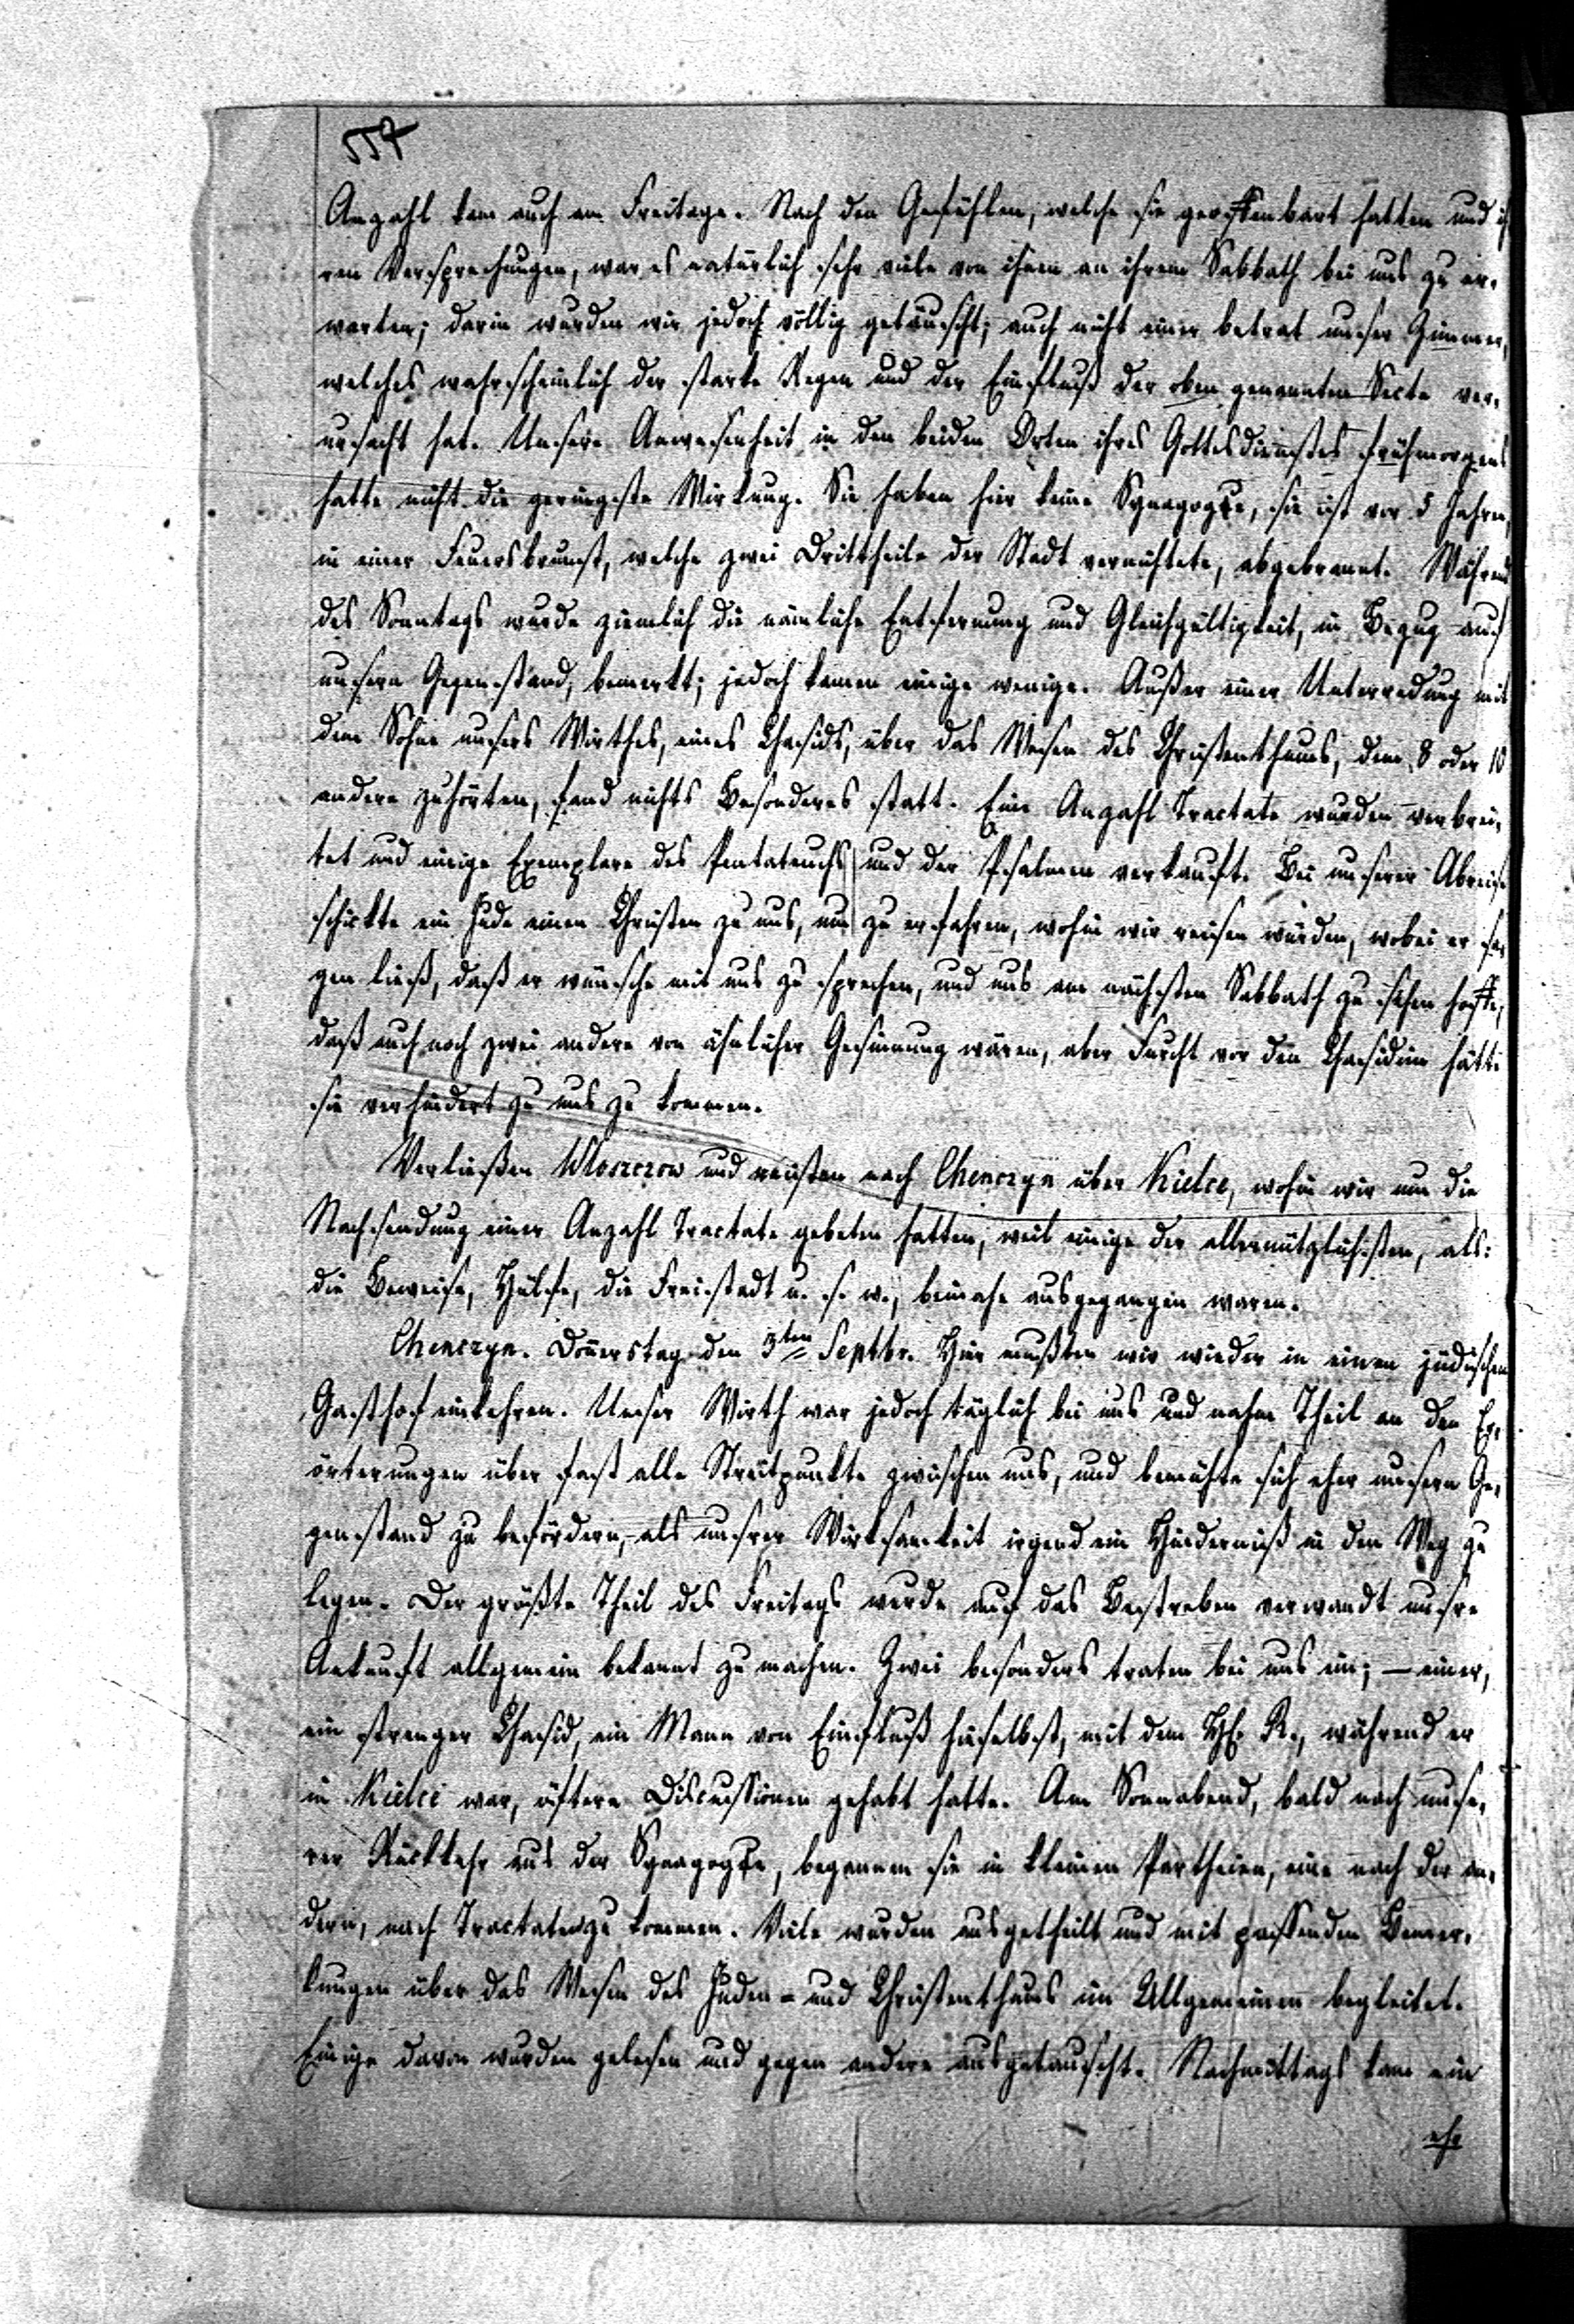 557
Anzahl kam auch am Freitage. Nach den Gefühlen, welche sie geoffenbart hatten und ih
ren Versprechungen, war es natürlich sehr viele von ihnen an ihrem Sabbath bei uns zu er-
warten; darin wurden wir jedoch völlig getäuscht; auch nicht einer betrat unser Zimmer,
welches wahrscheinlich der starke Regen und der Einfluß der oben genannten Secte ver-
ursacht hat. Unsere Anwesenheit in den beiden Orten ihres Gottesdienstes frühmorgens
hatte nicht die geringste Wirkung. Sie haben hier keine Synagoge, sie ist vor 5 Jahren,
in einer Feuersbrunst, welche zwei Drittheile der Stadt vernichtete, abgebrannt. Während
des Sonntags wurde ziemlich die nämliche Entfernung und Gleichgültigkeit, in Bezug auf
unsern Gegenstand, bemerkt; jedoch kamen einige wenige. Außer einer Unterredung mit
dem Sohne unsers Wirthes, eines Chasids, über das Wesen des Christenthums, dem 8 oder 10
andere zuhörten, fand nichts Besonderes statt. Eine Anzahl Tractate wurden verbrei-
tet und einige Exemplare des Pentateuchs und der Psalmen verkauft. Bei unserer Abreise
schickte ein Jude einen Christen zu uns, um zu erfahren, wohin wir reisen würden, wobei er sa-
gen ließ, daß er wünsche mit uns zu sprechen, und uns am nächsten Sabbath zu sehen hoffe,
daß auch noch zwei andere von ähnlicher Gesinnung wären, aber Furcht vor den Chasidim hätte
sie verhindert zu uns zu kommen.
Verließen Wloszczow und reisten nach Chenczyn über Kielce, wohin wir um die
Nachsendung einer Anzahl Tractate gebeten hatten, weil einige der allernützlichsten, als:
die Beweise, Hülfe, die Freistadt u. s. w., beinahe ausgegangen waren.
Chenczyn. Donnerstag den 3ten Septbr. Hier mußten wir wieder in einen jüdischen
Gasthof einkehren. Unser Wirth war jedoch täglich bei uns und nahm Theil an den Er-
örterungen über fast alle Streitpunkte zwischen uns, und bemühte sich eher unsern Ge-
genstand zu befördern, als unsrer Wirksamkeit irgend ein Hinderniß in den Weg zu
legen. Der größte Theil des Freitags wurde auf das Bestreben verwandt unsre
Ankunft allgemein bekannt zu machen. Zwei besonders traten bei uns ein; – einer,
ein strenger Chasid, ein Mann von Einfluß hieselbst, mit dem H. R., während er
in Kielce war, öftere Discussionen gehabt hatte. Am Sonnabend, bald nach unse-
rer Rückkehr aus der Synagoge, begannen sie in kleinen Partheien, eine nach der an-
dern, nach Tractaten zu kommen. Viele wurden ausgetheilt und mit passenden Bemer-
kungen über das Wesen des Juden- und Christenthums im Allgemeinen begleitet.
Einige davon wurden gelesen und gegen andere ausgetauscht. Nachmittags kam ein
ehr